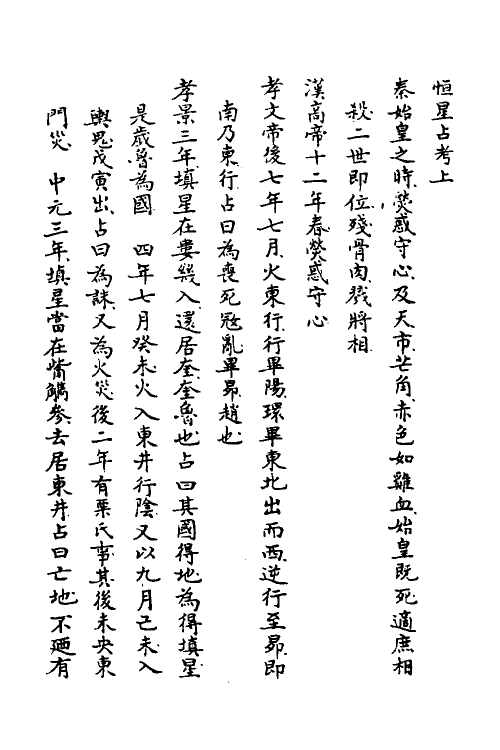 恒星占考上
秦始皇之時熒惑守心及天市芒角赤色如雞血始皇既死適庶相
殺二世即位殘骨肉戮將相
漢高帝十二年春熒惑守心
孝文帝後七年七月火東行行畢陽環畢東北出而西逆行至昴即
南乃東行占曰為喪死寇亂畢昴趙也
孝景三年填星在婁幾入還居奎奎魯也占曰其國得地為得填星
是歲魯為國　四年七月癸未火入東井行陰又以九月己未入
輿鬼戊寅出占曰為誅又為火災後二年有栗氏事其後未央東
門災　中元三年填星當在觜觿參去居東井占曰亡地不廼有